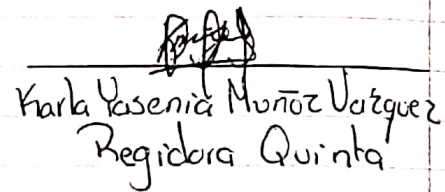 Karla Yasenia Muñoz Vazquez
Regidora Quinta